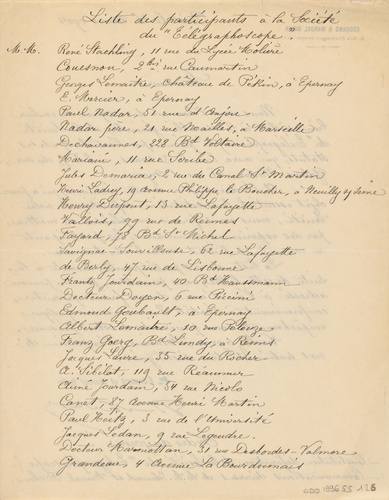 Liste des participants à la Société
du "Télégraphoscope".
M.M. René Staehling, 11 rue du Lycée Molière
Couesnon, 2 bis rue Caumartin
Georges Lemaître, Château de Pékin, à Epernay
E. Mercier, à Epernay
Paul Nadar, 51 rue d'Anjou
Nadar père, 21 rue Noailles, à Marseille
Dechavannes, 228 Bd Voltaire
Mariani, 11 rue Scribe
Jules Demaria, 2 rue du Canal St Martin
Henri Ladrey, 19 avenue Philippe le Boucher, à Neuilly s/ Seine
Henry Dupont, 13 rue Lafayette
Vallois, 99 rue de Rennes
Fayard, 78 Bd St Michel
Lafayette
de Berly, 47 rue de Lisbonne
Frantz Jourdain, 40 Bd Haussmann
Docteur Doyen, 6 rue Piccini
Edmond Goubault, à Epernay
Albert Lemaître, 10 rue Pelouze
Franz Goerg, Bd Lundy, à Reims
Jacques Faure, 35 rue du Rocher
A. Sibilat, 119 rue Réaumur
Aimé Jourdain, 54 rue Nicolo
Canet, 87 avenue Henri Martin
Paul Heitz, 3 rue de l'Université
Jacques Ledan, 9 rue Legendre.
Docteur 31 rue Desbordes-Valmore
Grandeau, 4 Avenue La Bourdonnais